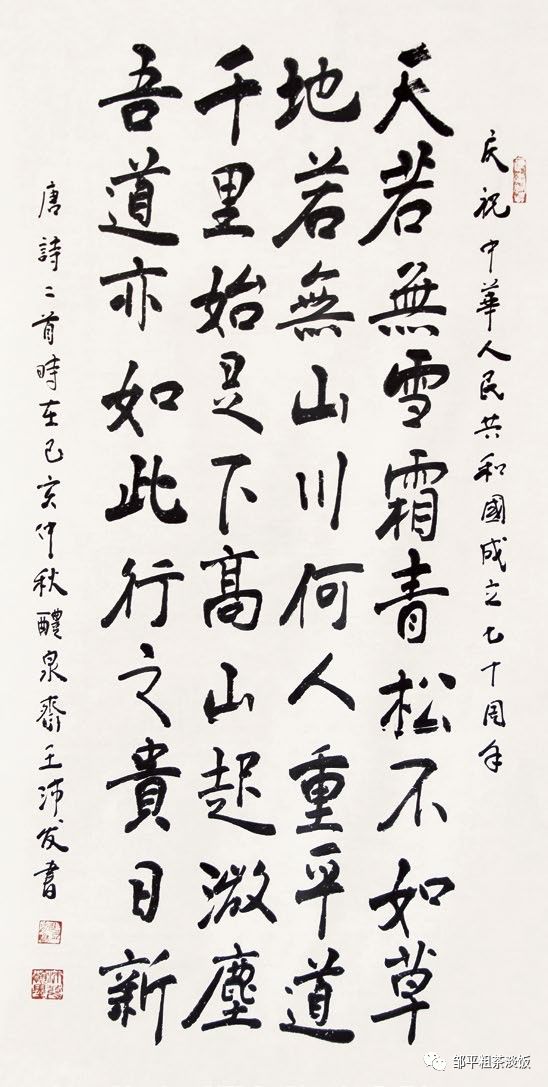 庆祝中華人民共和國成立七十周年
天若無雪霜青松不如草
地若無山川何人重平道
千里始足下高山起微塵
吾道亦如此行之貴日新
唐詩二首時在己亥仲秋醴泉齋王沛发書
邹平粗茶淡饭